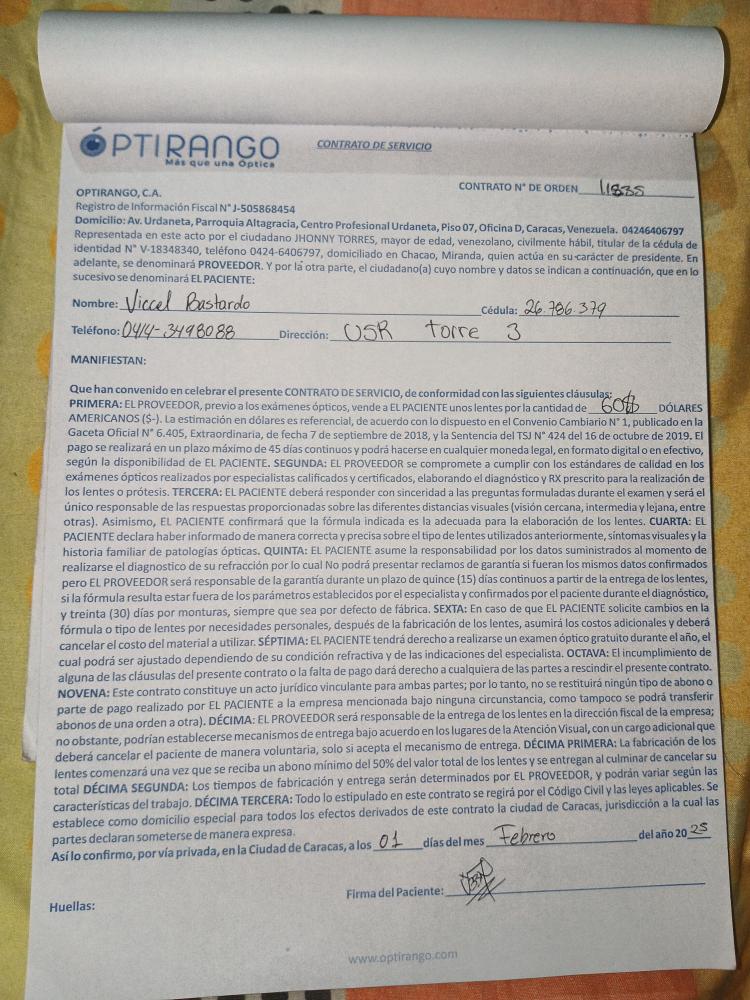 ÓPTIRANGO
Más que una Óptica
CONTRATO DE SERVICIO
CONTRATO N° DE ORDEN 11835
OPTIRANGO, C.A.
Registro de Información Fiscal N° J-505868454
Domicilio: Av. Urdaneta, Parroquia Altagracia, Centro Profesional Urdaneta, Piso 07, Oficina D, Caracas, Venezuela. 04246406797
Representada en este acto por el ciudadano JHONNY TORRES, mayor de edad, venezolano, civilmente hábil, titular de la cédula de
identidad N° V-18348340, teléfono 0424-6406797, domiciliado en Chacao, Miranda, quien actúa en su carácter de presidente. En
adelante, se denominará PROVEEDOR. Y por la otra parte, el ciudadano(a) cuyo nombre y datos se indican a continuación, que en lo
sucesivo se denominará EL PACIENTE:
Nombre: Viccel Bastardo Cédula: 26.786.379
Teléfono: 0414-3498088 Dirección: USR torre 3
MANIFIESTAN:
Que han convenido en celebrar el presente CONTRATO DE SERVICIO, de conformidad con las siguientes cláusulas:
PRIMERA: EL PROVEEDOR, previo a los exámenes ópticos, vende a EL PACIENTE unos lentes por la cantidad de 60$ DÓLARES
AMERICANOS ($-). La estimación en dólares es referencial, de acuerdo con lo dispuesto en el Convenio Cambiario N° 1, publicado en la
Gaceta Oficial N° 6.405, Extraordinaria, de fecha 7 de septiembre de 2018, y la Sentencia del TSJ N° 424 del 16 de octubre de 2019. El
pago se realizará en un plazo máximo de 45 días continuos y podrá hacerse en cualquier moneda legal, en formato digital o en efectivo,
según la disponibilidad de EL PACIENTE. SEGUNDA: EL PROVEEDOR se compromete a cumplir con los estándares de calidad en los
exámenes ópticos realizados por especialistas calificados y certificados, elaborando el diagnóstico y RX prescrito para la realización de
los lentes o prótesis. TERCERA: EL PACIENTE deberá responder con sinceridad a las preguntas formuladas durante el examen y será el
único responsable de las respuestas proporcionadas sobre las diferentes distancias visuales (visión cercana, intermedia y lejana, entre
otras). Asimismo, EL PACIENTE confirmará que la fórmula indicada es la adecuada para la elaboración de los lentes. CUARTA: EL
PACIENTE declara haber informado de manera correcta y precisa sobre el tipo de lentes utilizados anteriormente, síntomas visuales y la
historia familiar de patologías ópticas. QUINTA: EL PACIENTE asume la responsabilidad por los datos suministrados al momento de
realizarse el diagnostico de su refracción por lo cual No podrá presentar reclamos de garantía si fueran los mismos datos confirmados
pero EL PROVEEDOR será responsable de la garantía durante un plazo de quince (15) días continuos a partir de la entrega de los lentes,
si la fórmula resulta estar fuera de los parámetros establecidos por el especialista y confirmados por el paciente durante el diagnóstico,
y treinta (30) días por monturas, siempre que sea por defecto de fábrica. SEXTA: En caso de que EL PACIENTE solicite cambios en la
fórmula o tipo de lentes por necesidades personales, después de la fabricación de los lentes, asumirá los costos adicionales y deberá
cancelar el costo del material a utilizar. SÉPTIMA: EL PACIENTE tendrá derecho a realizarse un examen óptico gratuito durante el año, el
cual podrá ser ajustado dependiendo de su condición refractiva y de las indicaciones del especialista. OCTAVA: El incumplimiento de
alguna de las cláusulas del presente contrato o la falta de pago dará derecho a cualquiera de las partes a rescindir el presente contrato.
NOVENA: Este contrato constituye un acto jurídico vinculante para ambas partes; por lo tanto, no se restituirá ningún tipo de abono o
parte de pago realizado por EL PACIENTE a la empresa mencionada bajo ninguna circunstancia, como tampoco se podrá transferir
abonos de una orden a otra). DÉCIMA: EL PROVEEDOR será responsable de la entrega de los lentes en la dirección fiscal de la empresa;
no obstante, podrían establecerse mecanismos de entrega bajo acuerdo en los lugares de la Atención Visual, con un cargo adicional que
deberá cancelar el paciente de manera voluntaria, solo si acepta el mecanismo de entrega. DÉCIMA PRIMERA: La fabricación de los
lentes comenzará una vez que se reciba un abono mínimo del 50% del valor total de los lentes y se entregan al culminar de cancelar su
total DÉCIMA SEGUNDA: Los tiempos de fabricación y entrega serán determinados por EL PROVEEDOR, y podrán variar según las
características del trabajo. DÉCIMA TERCERA: Todo lo estipulado en este contrato se regirá por el Código Civil y las leyes aplicables. Se
establece como domicilio especial para todos los efectos derivados de este contrato la ciudad de Caracas, jurisdicción a la cual las
partes declaran someterse de manera expresa.
Así lo confirmo, por vía privada, en la Ciudad de Caracas, a los 01 días del mes Febrero del año 20 25
Firma del Paciente:
Huellas:
www.optirango.com